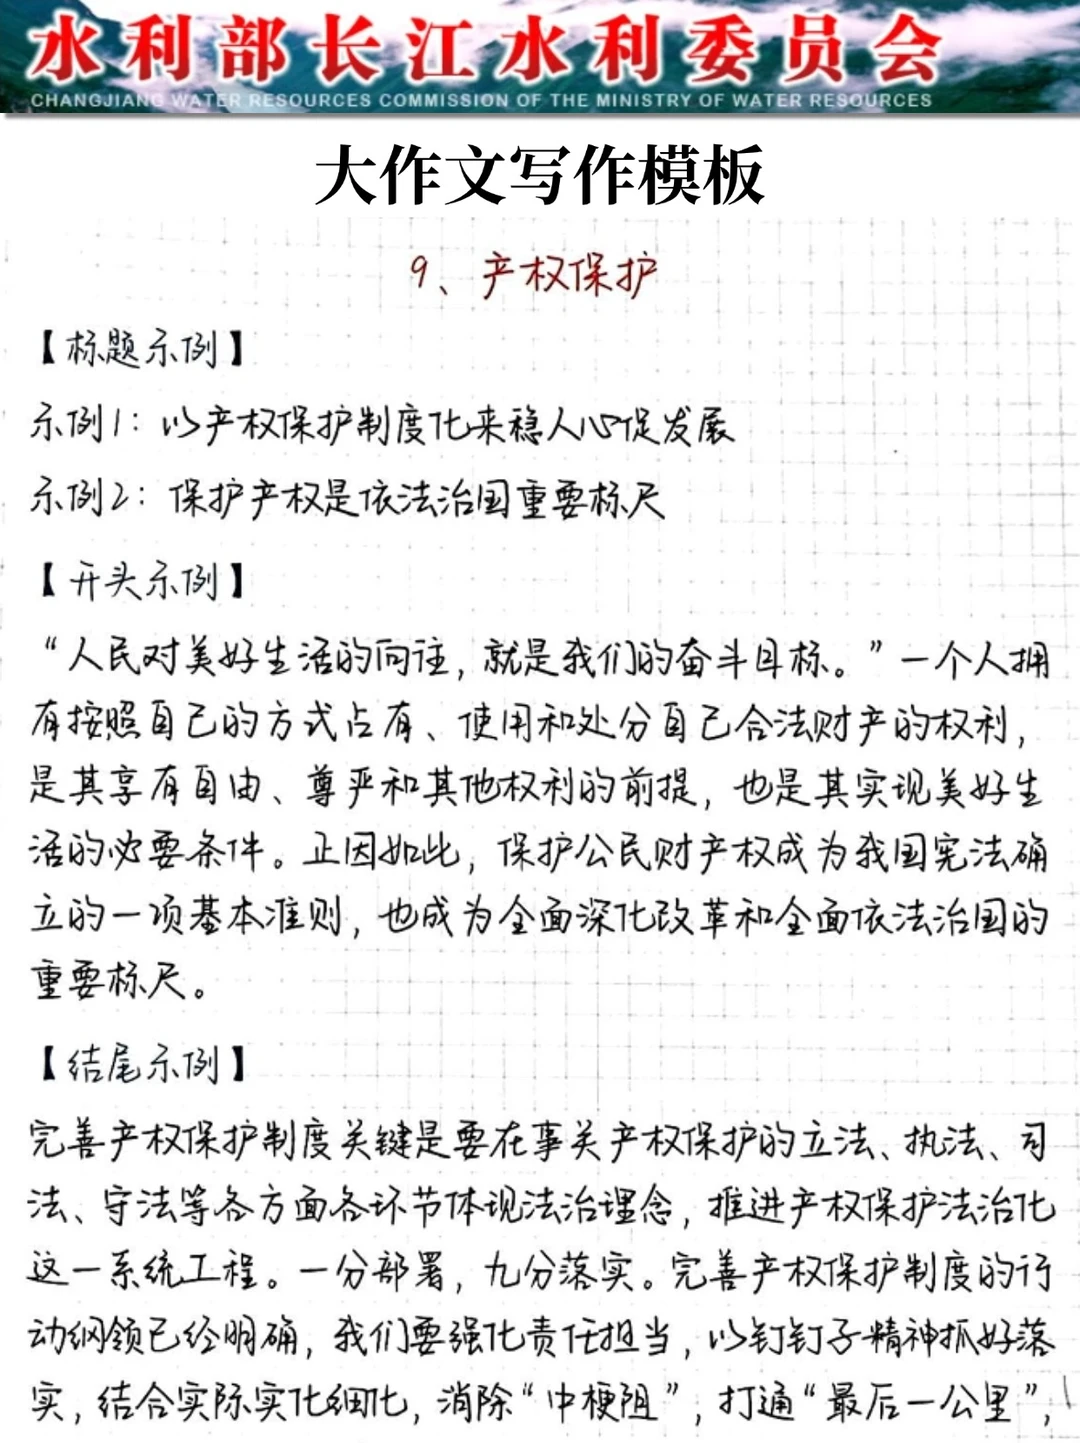 水利部长江水利委员会
CHANGJIANG WATER RESOURCES COMMISSION OF THE MINISTRY OF WATER RESOURCES
大作文写作模板
9、产权保护
【标题示例】
示例1：以产权保护制度化来稳人心促发展
示例2：保护产权是依法治国重要标尺
【开头示例】
“人民对美好生活的向往，就是我们的奋斗目标。”一个人拥
有按照自己的方式占有、使用和处分自己合法财产的权利，
是其享有自由、尊严和其他权利的前提，也是其实现美好生
活的必要条件。正因如此，保护公民财产权成为我国宪法确
立的一项基本准则，也成为全面深化改革和全面依法治国的
重要标尺。
【结尾示例】
完善产权保护制度关键是要在事关产权保护的立法、执法、司
法、守法等各方面各环节体现法治理念，推进产权保护法治化
这一系统工程。一分部署，九分落实。完善产权保护制度的行
动纲领已经明确，我们要强化责任担当，以钉钉子精神抓好落
实，结合实际实化细化，消除“中梗阻”，打通“最后一公里”，